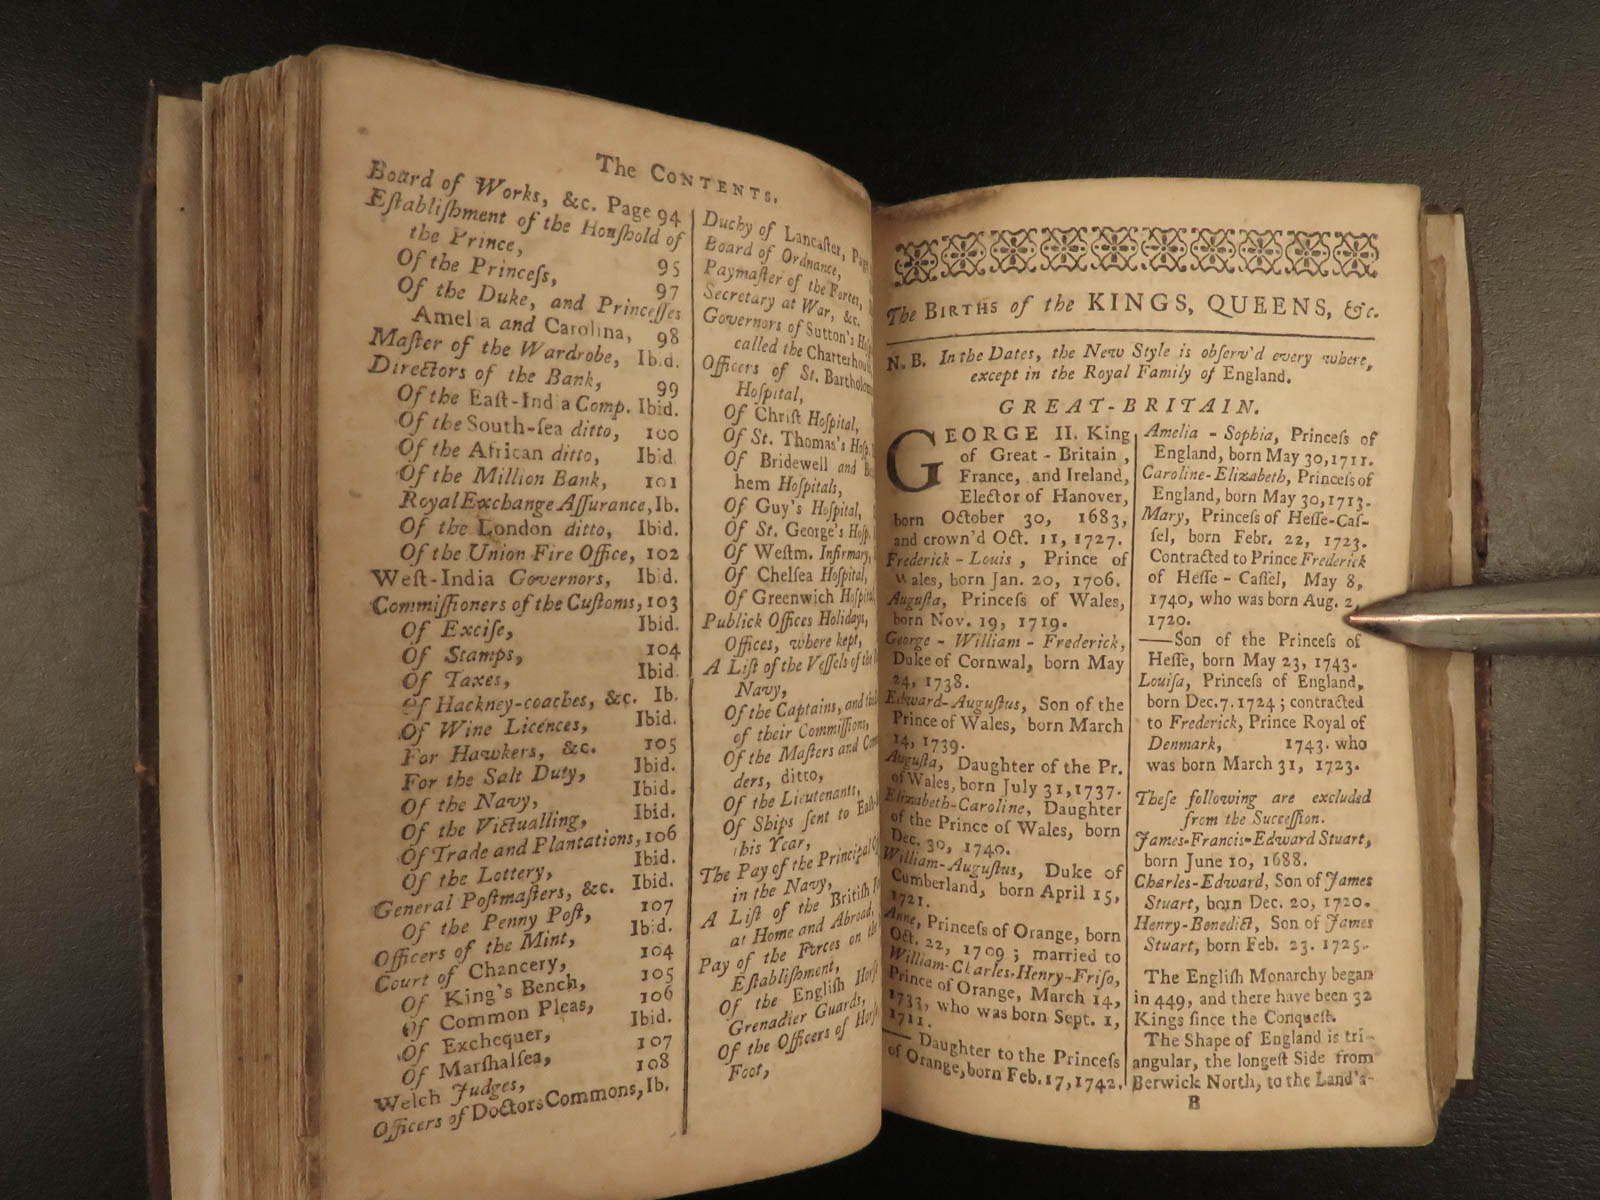 The CONTENTS.
Board of Works, &c. Page 94
Eſtabliſhment of the Houſhold of
the Prince, 95
Of the Princeſs, 97
Of the Duke, and Princeſſes
Amelia and Carolina, 98
Maſter of the Wardrobe, Ibid.
Directors of the Bank, 99
Of the Eaſt-India Comp. Ibid.
Of the South-ſea ditto, 100
Of the African ditto, Ibid
Of the Million Bank, 101
Royal Exchange Aſſurance, Ib.
Of the London ditto, Ibid.
Of the Union Fire Office, 102
Weſt-India Governors, Ibid.
Commiſſioners of the Cuſtoms, 103
Of Exciſe, Ibid.
Of Stamps, 104
Of Taxes, Ibid.
Of Hackney-coaches, &c. Ib.
Of Wine Licences, Ibid.
For Hawkers, &c. 105
For the Salt Duty, Ibid.
Of the Navy, Ibid.
Of the Victualling, Ibid.
Of Trade and Plantations, 106
Of the Lottery, Ibid.
General Poſtmaſters, &c. Ibid.
Of the Penny Poſt, 107
Officers of the Mint, Ibid.
Court of Chancery, 104
Of King's Bench, 105
Of Common Pleas, 106
Of Exchequer, Ibid.
Of Marſhalſea, 107
Welch Judges, 108
Officers of Doctors Commons, Ib.
Duchy of Lancaſter, Page
Board of Ordnance,
Paymaſter of the Forces,
Secretary at War, &c.
Governors of Sutton's
called the Charterhouſe,
Officers of St.
Hoſpital,
Of Chriſt Hoſpital,
Of St. Thomas's Hoſp.
Of Bridewell and
hem Hoſpitals,
Of Guy's Hoſpital,
Of St. George's Hoſp.
Of Weſtm. Infirmary,
Of Chelſea Hoſpital,
Of Greenwich Hoſpital
Publick Offices Holidays,
Offices, where kept,
A Liſt of the Veſſels of the
Navy,
Of the Captains, and
of their Commiſſions,
Of the Maſters and
ders, ditto,
Of the Lieutenants,
Of Ships ſent to
this Year,
The Pay of the Principal
in the Navy,
A Liſt of the Britiſh
at Home and Abroad,
Pay of the Forces on the
Eſtabliſhment,
Of the Engliſh Horſe
Grenadier Guards,
Of the Officers of Horſe
Foot,
The BIRTHS of the KINGS, QUEENS, &c.
N. B. In the Dates, the New Style is obſerv'd every where,
except in the Royal Family of England.
GREAT-BRITAIN.
GEORGE II. King
of Great-Britain,
France, and Ireland,
Elector of Hanover,
born October 30, 1683,
and crown'd Oct. 11, 1727.
Frederick-Louis, Prince of
Wales, born Jan. 20, 1706.
Auguſta, Princeſs of Wales,
born Nov. 19, 1719.
George-William-Frederick,
Duke of Cornwal, born May
24, 1738.
Edward-Auguſtus, Son of the
Prince of Wales, born March
14, 1739.
Auguſta, Daughter of the Pr.
of Wales, born July 31, 1737.
Elizabeth-Caroline, Daughter
of the Prince of Wales, born
Dec. 30, 1740.
William-Auguſtus, Duke of
Cumberland, born April 15,
1721.
Anne, Princeſs of Orange, born
Oct. 22, 1709; married to
William-Charles-Henry-Friſo,
Prince of Orange, March 14,
1733, who was born Sept. 1,
1711.
—— Daughter to the Princeſs
of Orange, born Feb. 17, 1742.
Amelia-Sophia, Princeſs of
England, born May 30, 1711.
Caroline-Elizabeth, Princeſs of
England, born May 30, 1713.
Mary, Princeſs of Heſſe-Caſ-
ſel, born Febr. 22, 1723.
Contracted to Prince Frederick
of Heſſe-Caſſel, May 8,
1740, who was born Aug. 2,
1720.
——Son of the Princeſs of
Heſſe, born May 23, 1743.
Louiſa, Princeſs of England,
born Dec. 7. 1724; contracted
to Frederick, Prince Royal of
Denmark, 1743. who
was born March 31, 1723.
Theſe following are excluded
from the Succeſſion.
James-Francis-Edward Stuart,
born June 10, 1688.
Charles-Edward, Son of James
Stuart, born Dec. 20, 1720.
Henry-Benedict, Son of James
Stuart, born Feb. 23. 1725.
The Engliſh Monarchy began
in 449, and there have been 32
Kings ſince the Conqueſt.
The Shape of England is tri-
angular, the longeſt Side from
Berwick North, to the Land's-
B